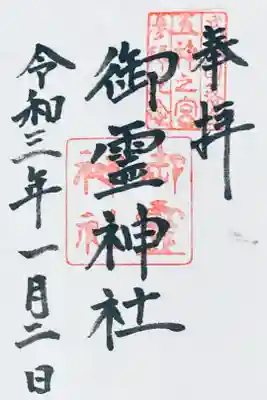 奉拝
御霊神社
御霊神社
令和三年一月二日